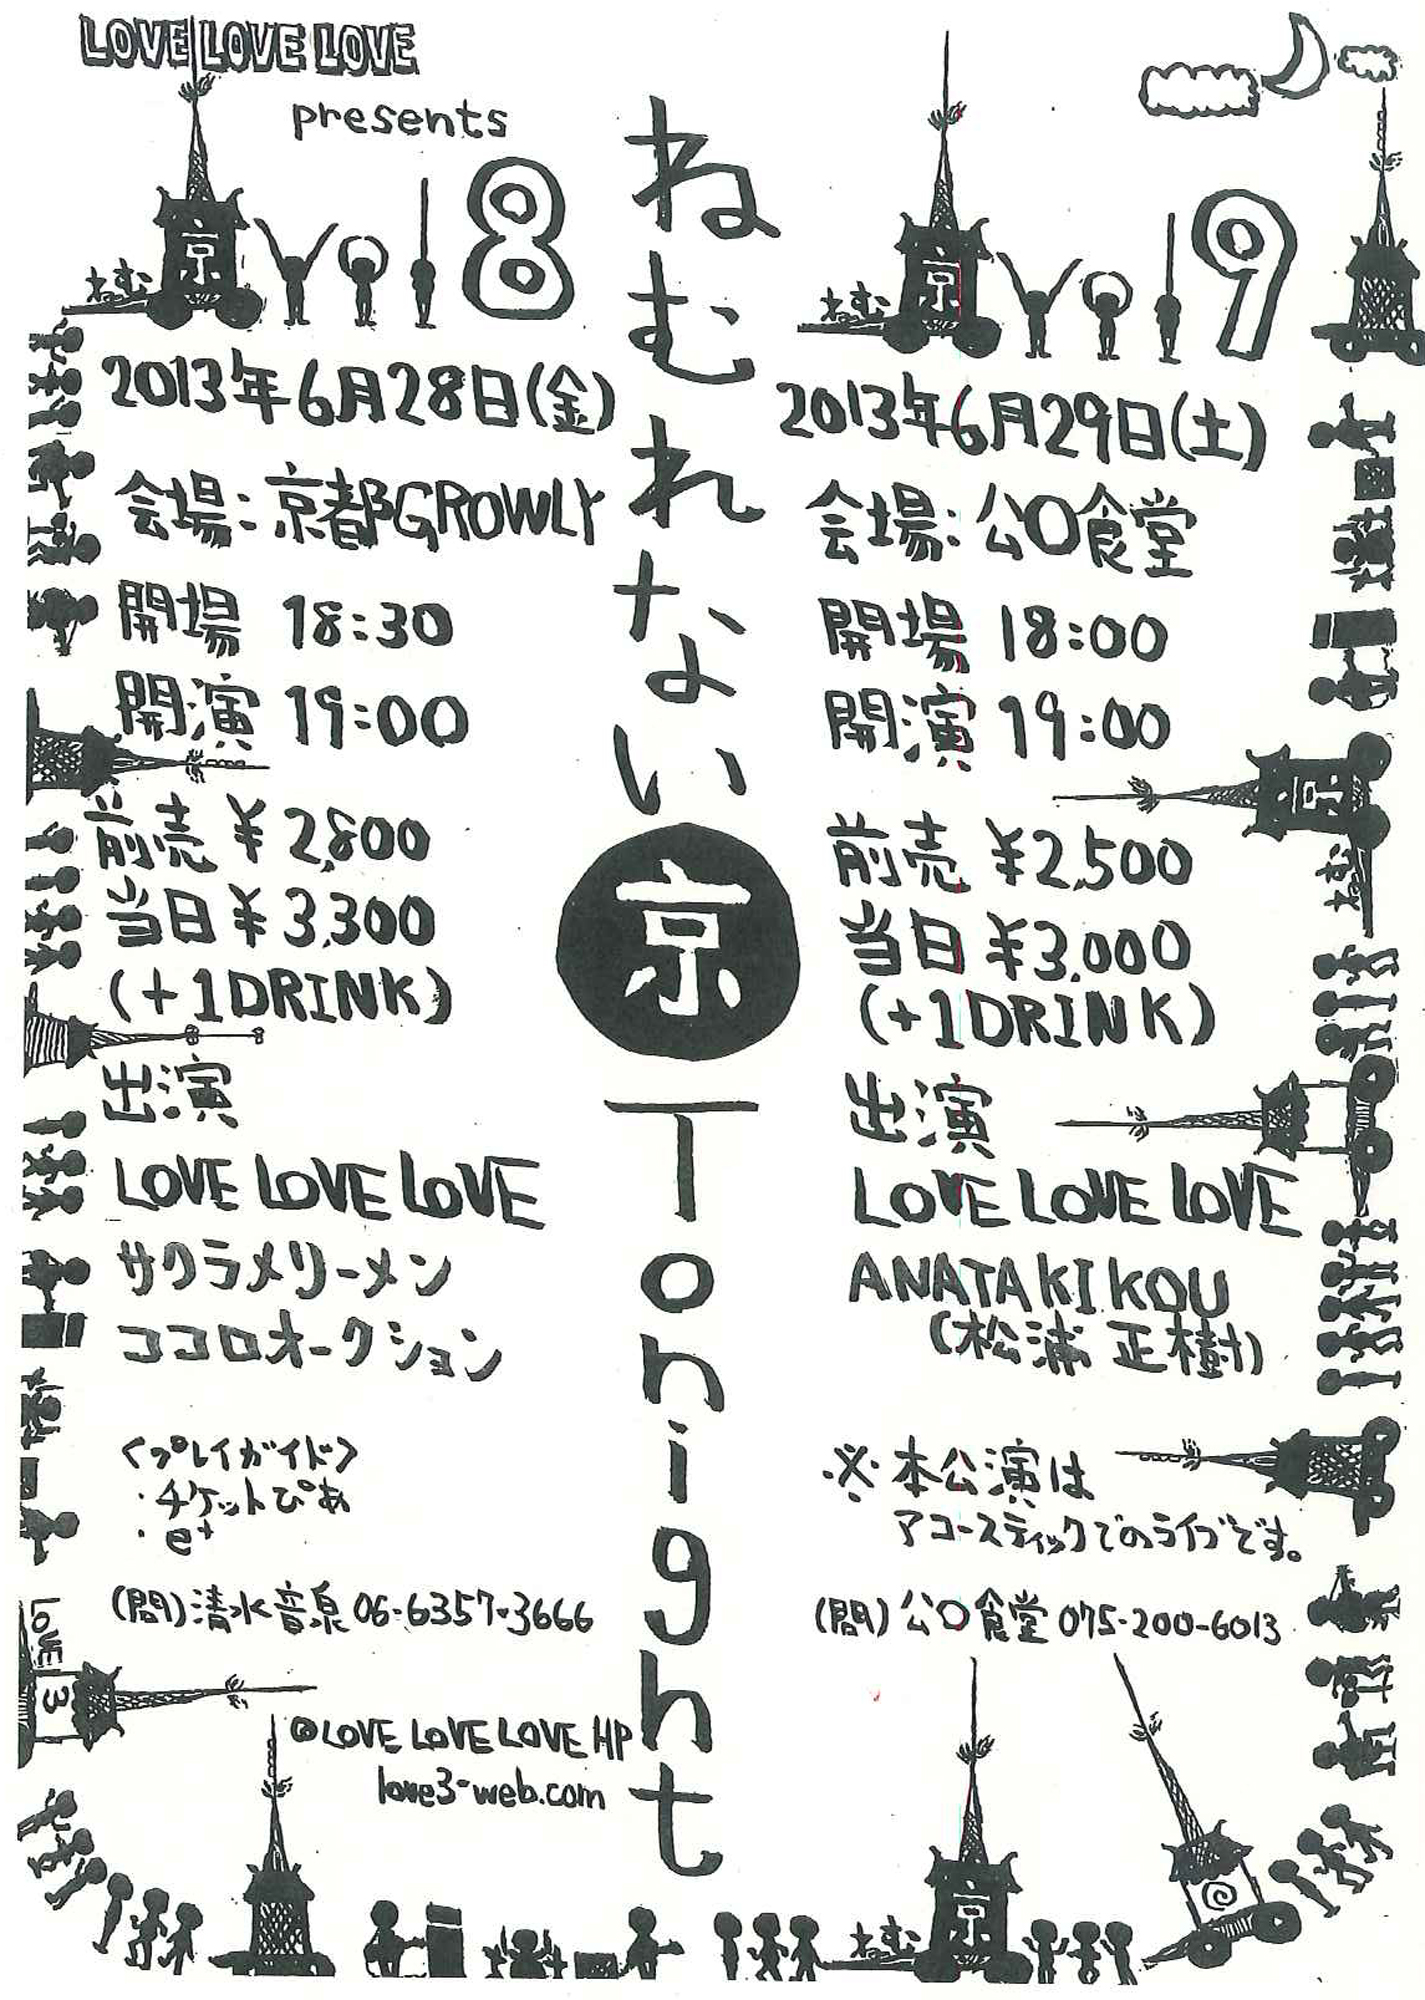 LOVE LOVE LOVE
presents
ねむ 京 VOl 8
2013年6月28日(金)
会場:京都GROWLY
開場 18:30
開演 19:00
前売 ¥2,800
当日 ¥3,300
(+1DRINK)
出演
LOVE LOVE LOVE
サクラメリーメン
ココロオークション
<プレイガイド>
・チケットぴあ
・e+
(問)清水音泉 06-6357-3666
LOVE
3
@LOVE LOVE LOVE HP
love3-web.com
ねむれない京Tonight
ねむ 京 VOl 9
2013年6月29日(土)
会場:公○食堂
開場 18:00
開演 19:00
前売 ¥2,500
当日 ¥3,000
(+1DRINK)
出演
LOVE LOVE LOVE
ANATAKIKOU
(松浦 正樹)
※本公演は
アコースティックでのライブです。
(問)公○食堂 075-200-6013
京
ねむ
ねむ 京